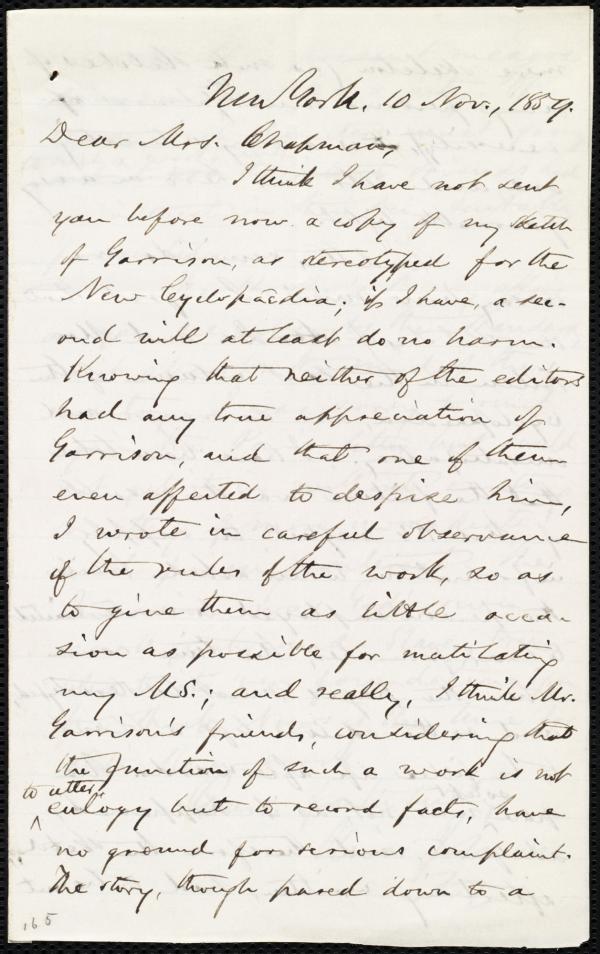 New York. 10 Nov., 1859.
Dear Mrs. Chapman,
I think I have not sent
you before now a copy of my sketch
of Garrison, as stereotyped for the
New Cyclopædia; if I have, a sec-
ond will at least do no harm.
Knowing that neither of the editors
had any true appreciation of
Garrison, and that one of them
even affected to despise him,
I wrote in careful observance
of the rules of the work, so as
to give them as little occa-
sion as possible for mutilating
my MS.; and really, I think Mr.
Garrison's friends, considering that
the function of such a work is not
to utter
eulogy but to record facts, have
no ground for serious complaint.
The story, though pared down to a
165